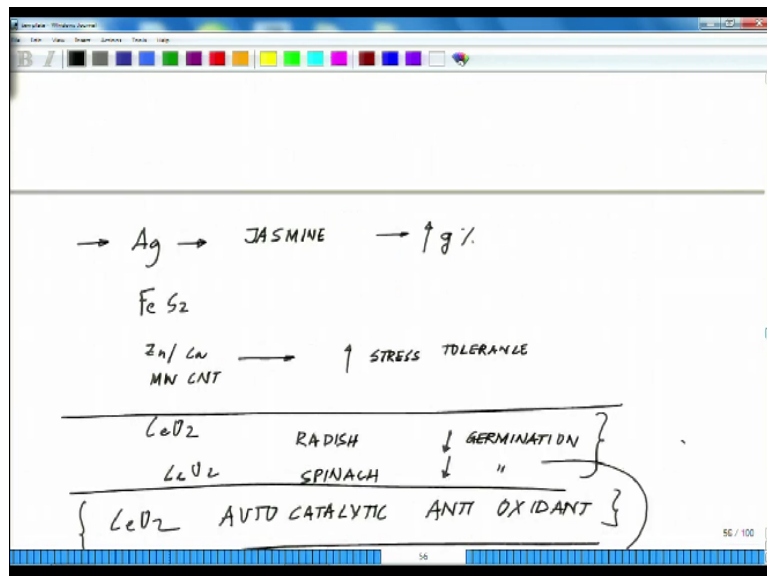 template - Windows Journal
File Edit View Insert Actions Tools Help
B I
→ Ag → JASMINE → ↑ g %
FeS2
Zn/Cu → ↑ STRESS TOLERANCE
MWCNT
CeO2 RADISH ↓ GERMINATION }
CeO2 SPINACH ↓ "
{ CeO2 AUTO CATALYTIC ANTI OXIDANT }
56 / 100
56